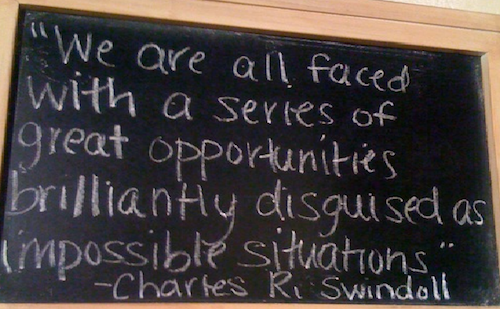 "We are all faced
with a series of
great opportunities
brilliantly disguised as
impossible situations"
-Charles R. Swindoll